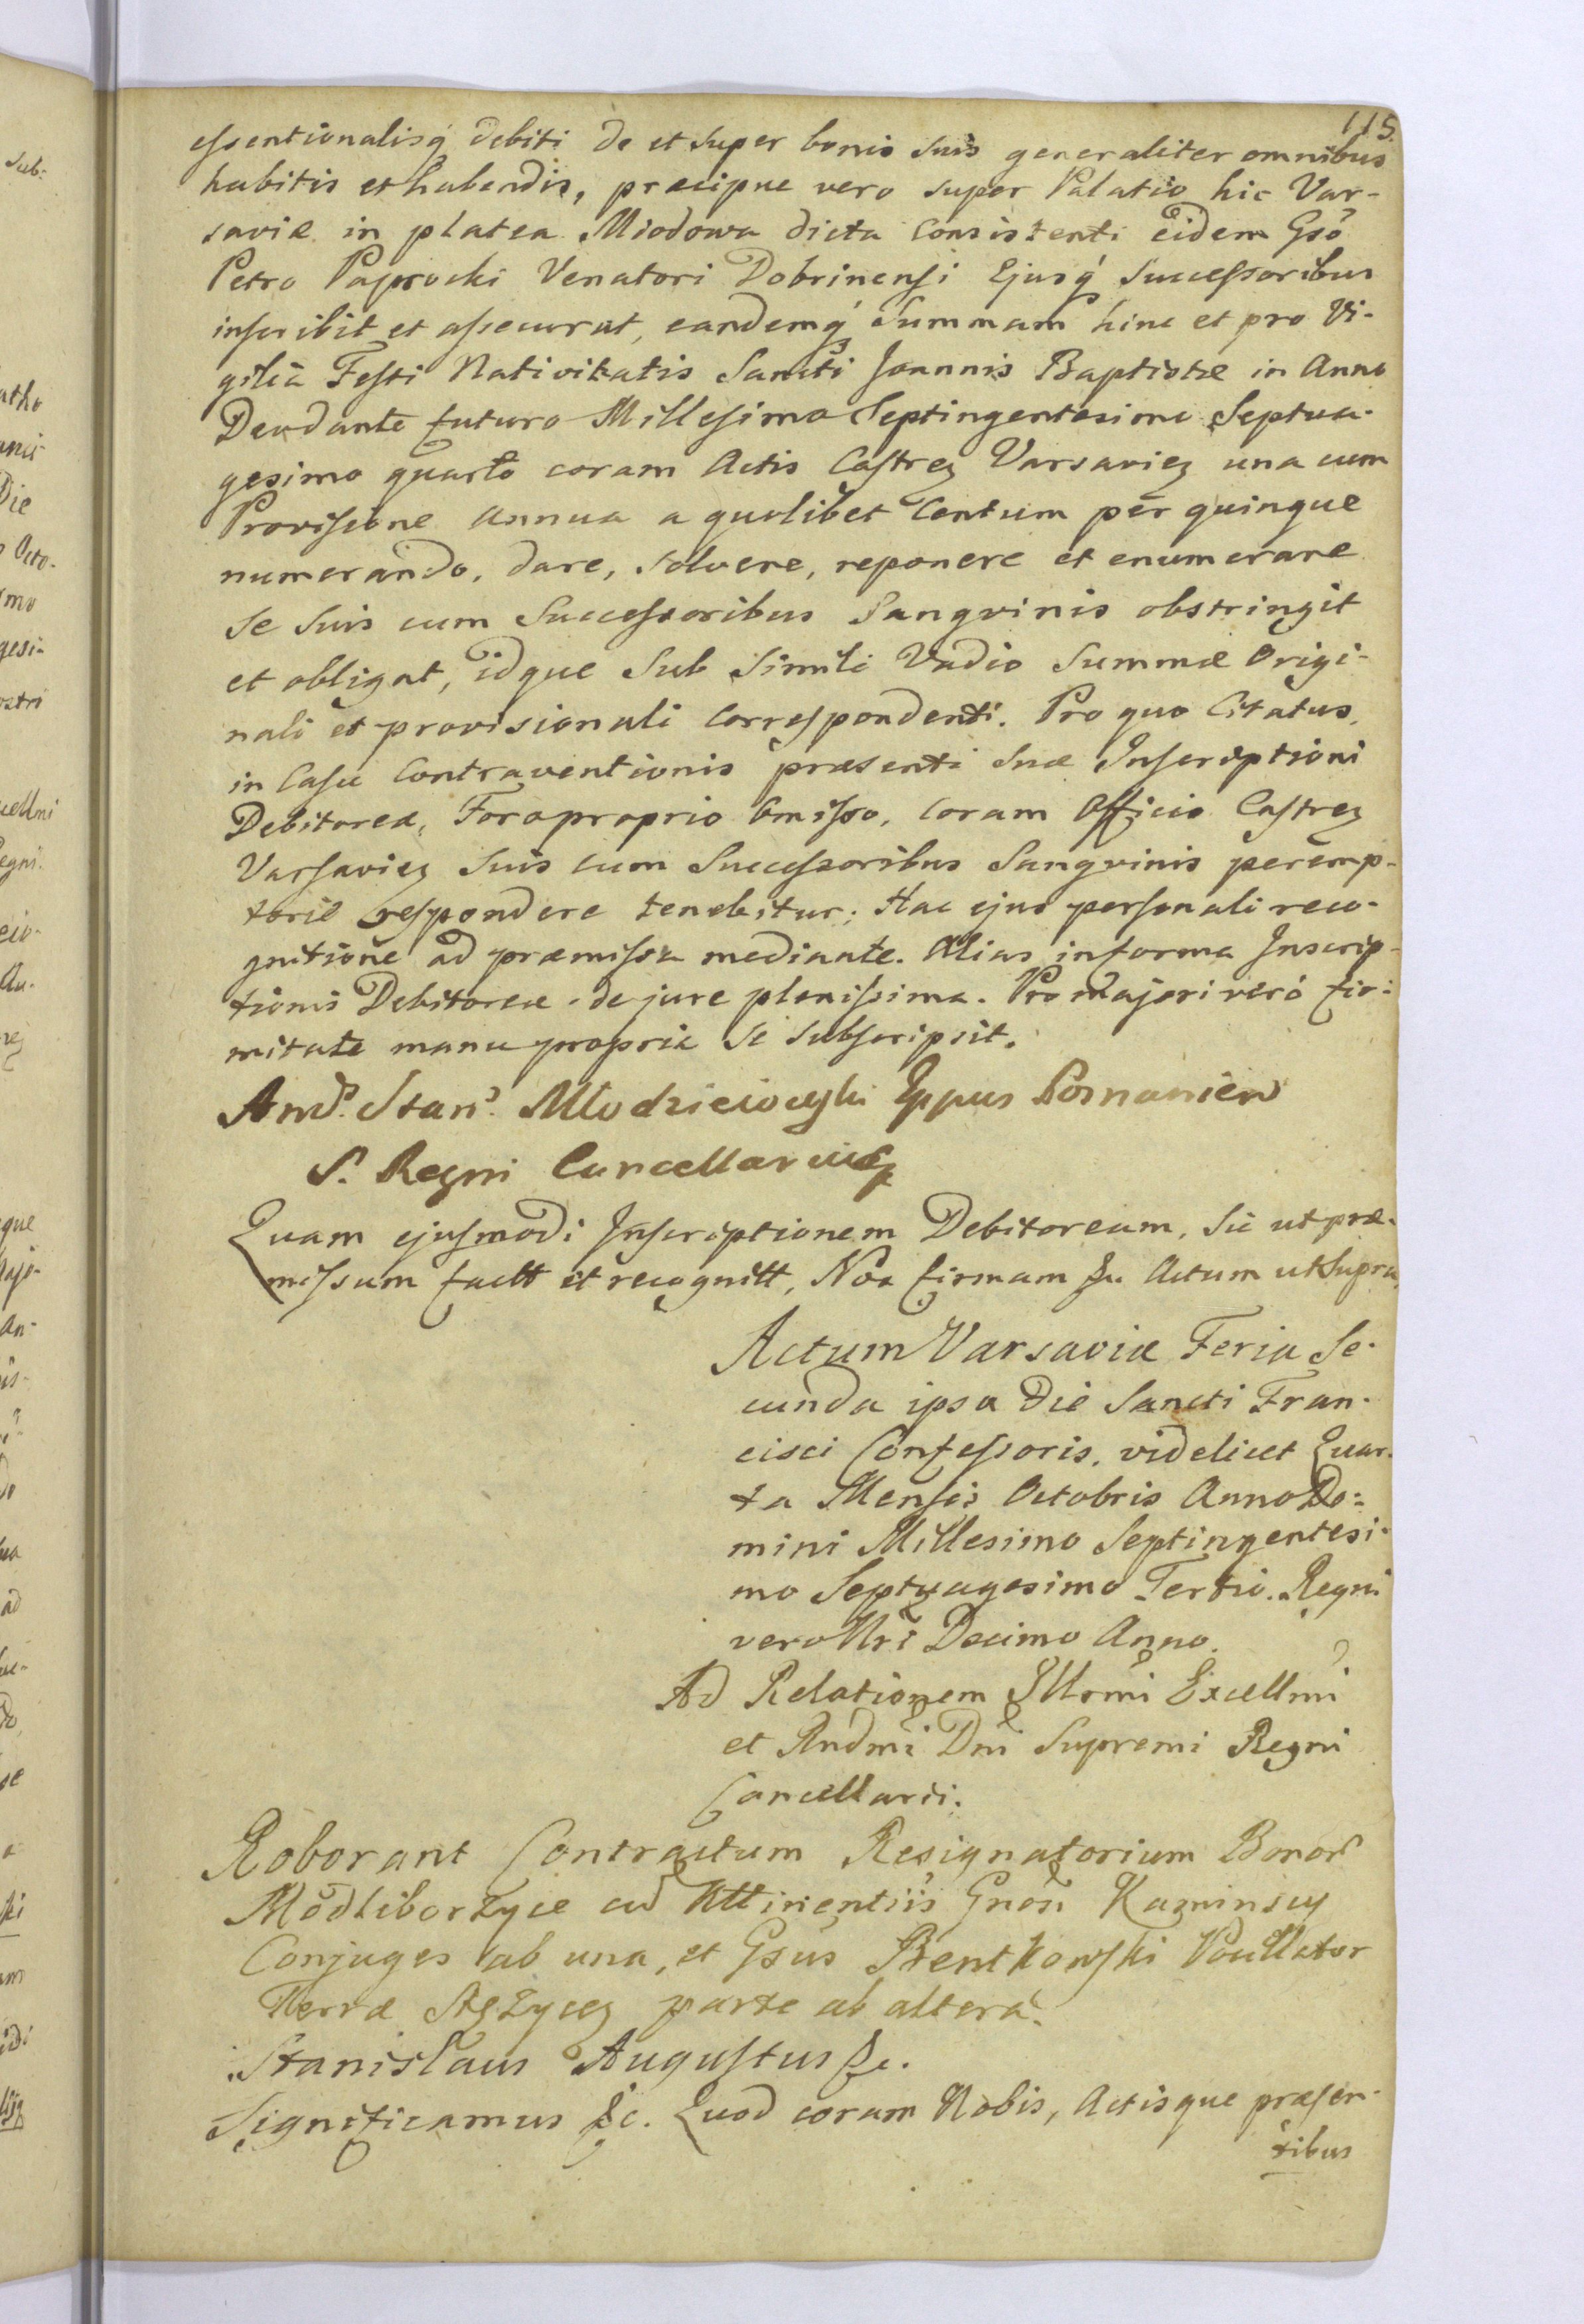 115.
essentionalisq́ debiti de et super bonis suis generaliter omnibus
habitis et habendis, præcipue vero super Palatio hic Var-
saviæ in platea Miodowa dicta Consistenti eidem Gsõ
Petro Paprocki Venatori Dobrinensi Ejusq́ Successoribus
inscribit et assecurat, eandemq́ Summam hinc et pro Vi-
gilia Festi Nativitatis Sancti Joannis Baptistæ in Anno
Deodante futuro Millesimo Septingentesimo Septua-
gesimo quarto coram Actis Castreñ Varsavieñ una cum
Provisione annua a quolibet Centum per quinque
numerando, dare, solvere, reponere et enumerare
se suis cum Successoribus Sangvinis obstringit
et obligat, idque sub simili Vadio Summæ Origi-
nali et provisionali Correspondenti. Pro quo Citatus,
in Casu Contraventionis præsenti suæ Inscriptioni
Debitoreæ, Foro proprio Omisso, coram Officio Castreñ
Varsavieñ suis cum Successoribus Sangvinis peremp-
toriè respondere tenebitur; Hac ejus personali reco-
gnitione ad præmissa mediante. Alias in forma Inscrip-
tionis Debitoreæ de jure plenissima. Pro majori verò fir-
mitate manu propria se subscripsit.
And: Stan: Młodzieiowski Eppus Posnanien
S. Regni Cancellarius
Quam ejusmodi Inscriptionem Debitoream, sic ut præ-
missum factt et recognitt, Nos firmam &c. Actum ut Supra
Actum Varsaviæ Feria Se-
cunda ipsa Die Sancti Fran-
cisci Confessoris, videlicet Quar-
ta Mensis Octobris Anno Do-
mini Millesimo Septingentesi-
mo Septuagesimo Tertio. Regni
vero Nri Decimo Anno.
Ad Relationem Illrmi Excellmi
et Rndmi Dni Supremi Regni
Cancellarii.
Roborant Contractum Resignatorium Bonor
Modliborzyce cũ Attinentiis Gnosi Kaminscy
Conjuges ab una, et Gsus Bentkowski
Terræ Stężyceñ parte ab altera.
Stanislaus Augustus &c.
Significamus &c. Quod coram Nobis, Actisque præsen-
tibus